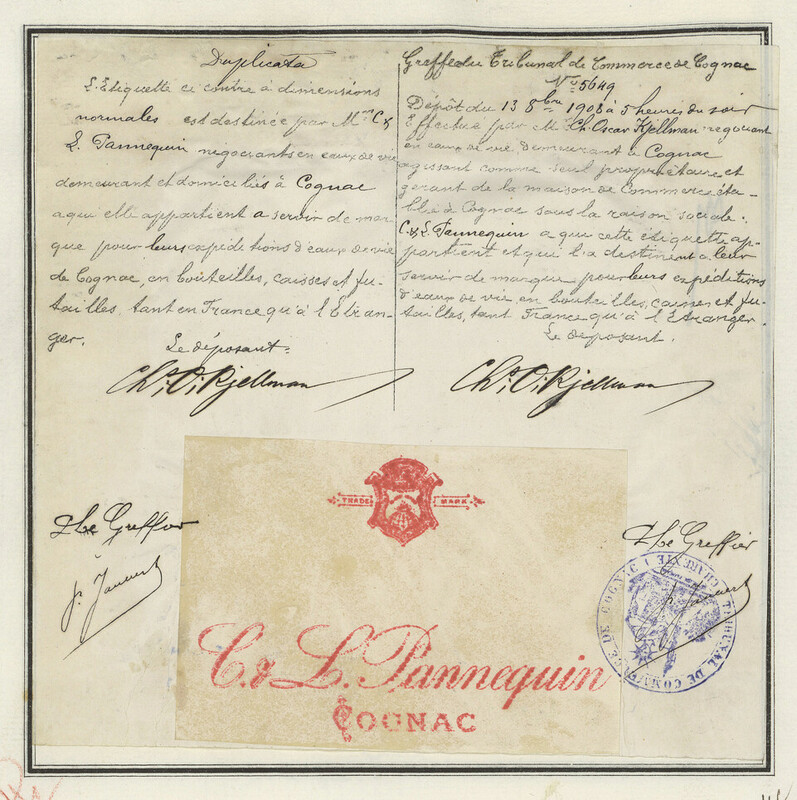 Duplicata
L'Etiquette ci contre à dimensions
normales est destinée par Mrs C. &
L. Pannequin négociants en eaux de vie
demeurant et domiciliés à Cognac
a qui elle appartient a servir de mar-
que pour leurs expéditions d'eaux de vie
de Cognac, en bouteilles, caisses et fu-
tailles, tant en France qu'à l'Etran-
ger.
Le déposant.
Ch. O. Kjellman
Greffe du Tribunal de Commerce de Cognac
No 5649
Dépôt du 13 8bre 1908 à 5 heures du soir
Effectué par Mr Ch. Oscar Kjellman négociant
en eaux de vie demeurant à Cognac
agissant comme seul propriétaire et
gérant de la maison de Commerce éta-
blie à Cognac sous la raison sociale:
C. & L. Pannequin a que cette étiquette ap-
partient et qui l'a destinent a leur
servir de marque pour leurs expéditions
d'eaux de vie en bouteilles, caisses et fu-
tailles, tant France qu'à l'Etranger.
Le déposant.
Ch. O. Kjellman
Le Greffier
Le Greffier
TRADE MARK
C. & L. Pannequin
COGNAC
TRIBUNAL DE COMMERCE DE COGNAC (CHARENTE)